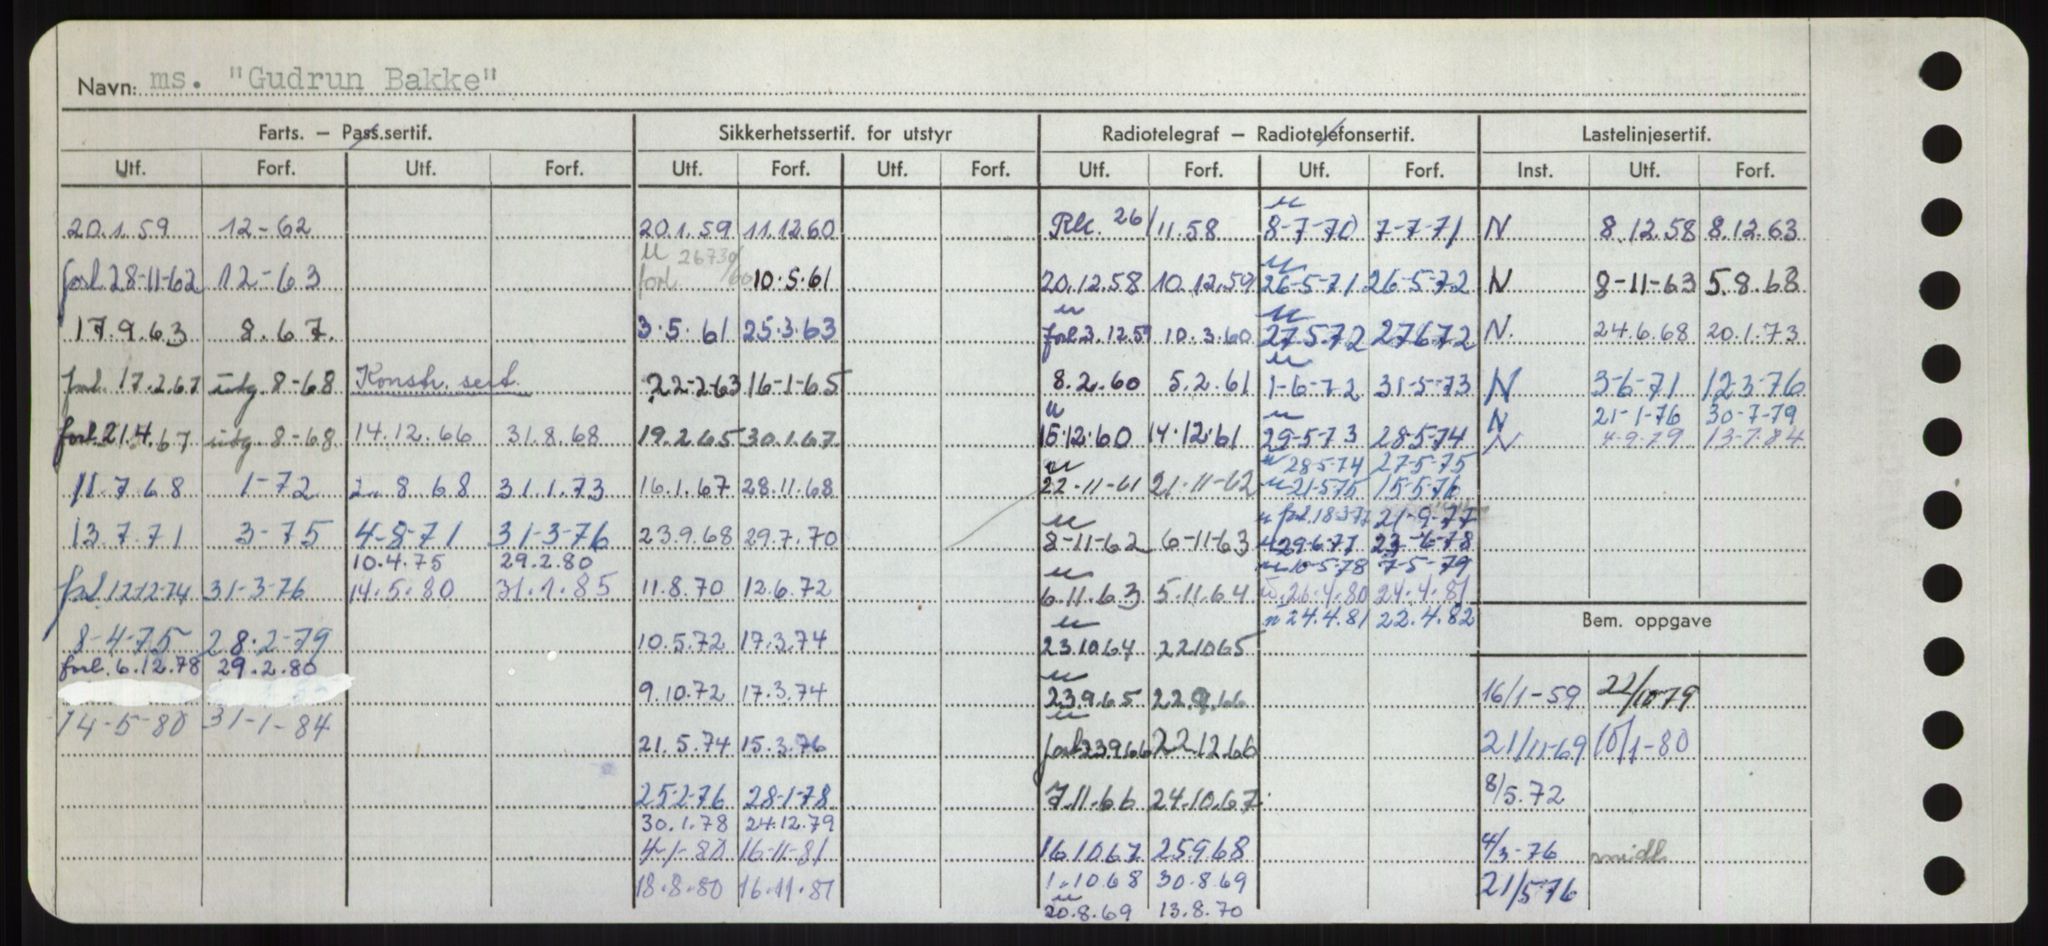 Navn: ms. "Gudrun Bakke"
Farts. – Pass.sertif. Sikkerhetssertif. for utstyr Radiotelegraf – Radiotelefonsertif. Lastelinjesertif.
Utf. Forf. Utf. Forf. Utf. Forf. Utf. Forf. Utf. Forf. Utf. Forf. Inst. Utf. Forf.
20.1.59 12-62 20.1.59 11.12.60 26/11.58 8-7-70 7-7-71 N 8.12.58 8.12.63
forl. 28-11-62 12-63 forl. 10.5.61 20.12.58 10.12.59 26-5-71 26-5-72 N 8-11-63 5.8.68
17.9.63 8.67. 3.5.61 25.3.63 forl. 3.12.59 10.3.60 27.5.72 27.6.72 N. 24.6.68 20.1.73
forl. 17.2.67 utg. 8-68 Konstr. sert. 22-2-63 16-1-65 8.2.60 5.2.61 1-6-72 31-5-73 N 3-6-71 12.3-76
N 21-1-76 30-7-79
forl. 21.4.67 utg. 8-68 14.12.66 31.8.68 19.2.65 30.1.67 15.12.60 14.12.61 29-5-73 28-5-74 N 4-9-79 13-7.84
28-5-74 27-5-75
11.7.68 1-72 2.8.68 31.1.73 16.1.67 28.11.68 22-11-61 21-11-62 21-5-75 15-5-76
forl. 18-3-77 21-9-77
13.7.71 3-75 4-8-71 31-3-76 23.9.68 29.7.70 8-11-62 6-11-63 29-6-77 23-6-78
10.4.75 29.2.80 10-5-78 7-5-79
forl. 12-12-74 31-3-76 14.5.80 31.1.85 11.8.70 12.6.72 6.11.63 5.11.64 26.4.80 24.4.81
24.4.81 22.4.82
Bem. oppgave
8-4-75 28.2-79 10.5.72 17.3.74 23.10.64 22.10.65
forl. 6.12.78 29.2.80
9.10.72 17.3.74 23.9.65 22.9.66 16/1-59 22/10-79
14-5-80 31-1-84
21.5.74 15.3.76 forl. 23.9.66 22.12.66 21/11-69 10/1-80
25-2-76 28-1-78 7.11.66 24.10.67 8/5.72
30.1.78 24.12.79
4-1-80 16-11-81 16.10.67 25.9.68 4/3-76 midl.
18.8.80 16.11.81 1.10.68 30.8.69 21/5-76
20.8.69 13.8.70